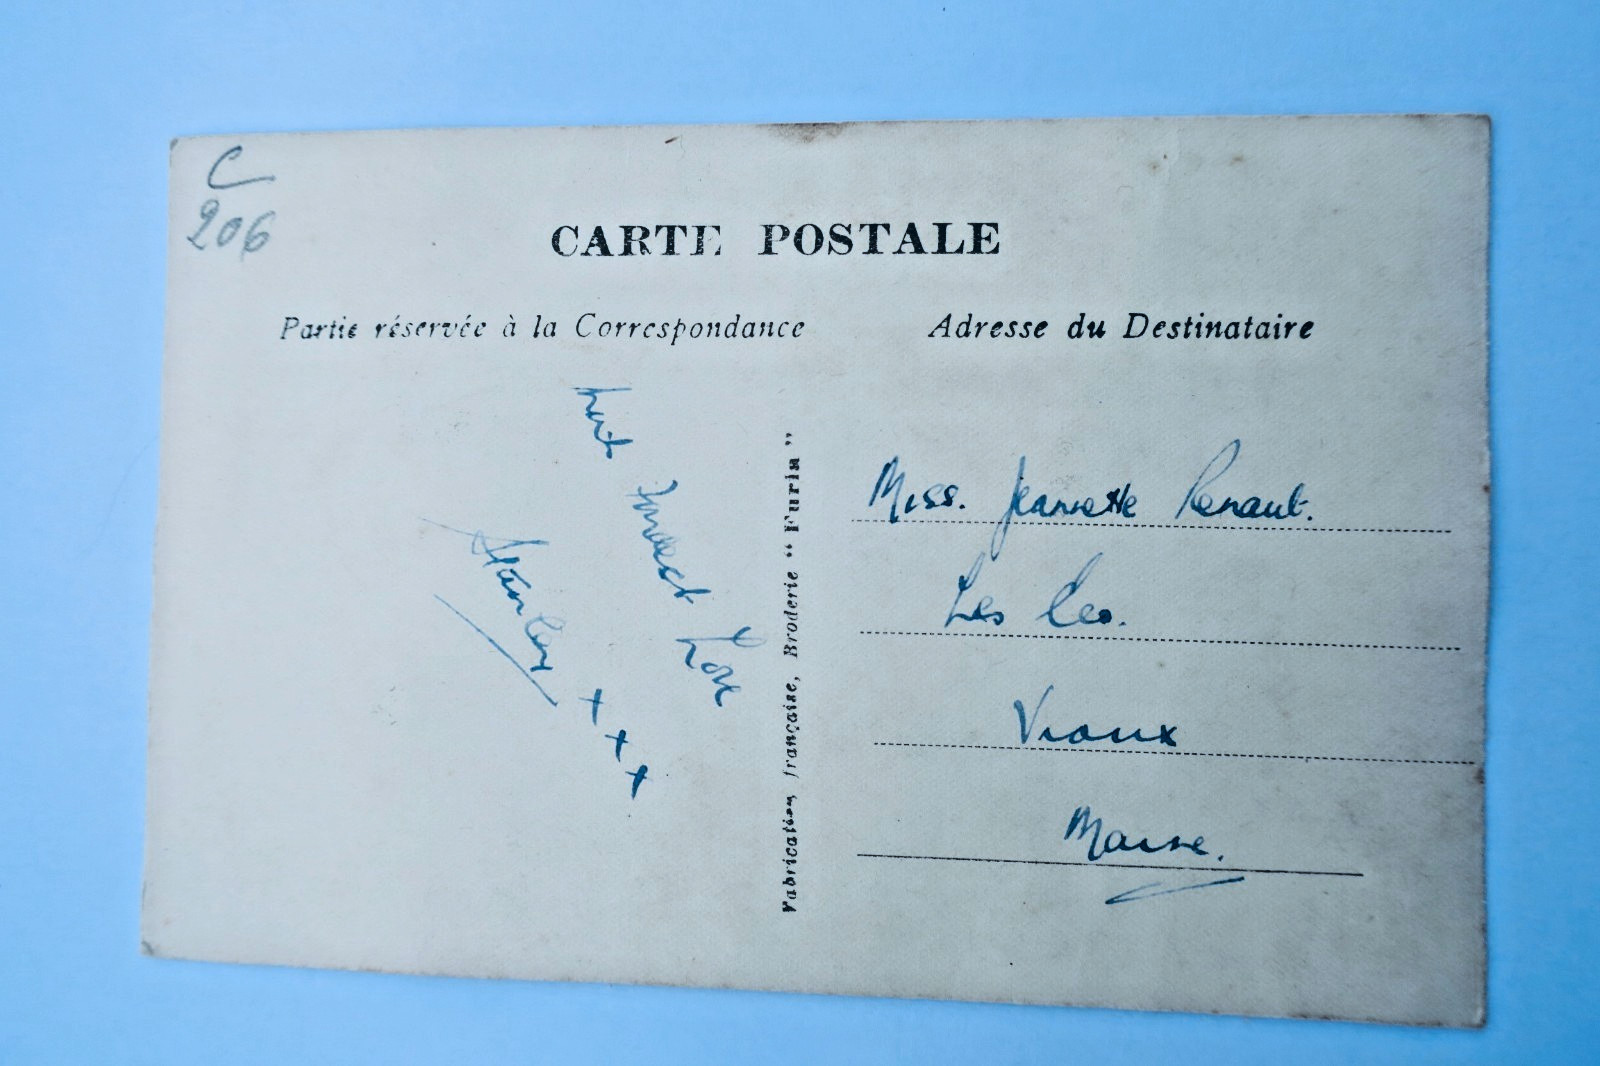 C
206
CARTE POSTALE
Partie réservée à la Correspondance
Adresse du Destinataire
Fondest Love
Stanley
+ + +
Fabrication française, Broderie " Furia "
Miss. Jeanette Renault.
Les